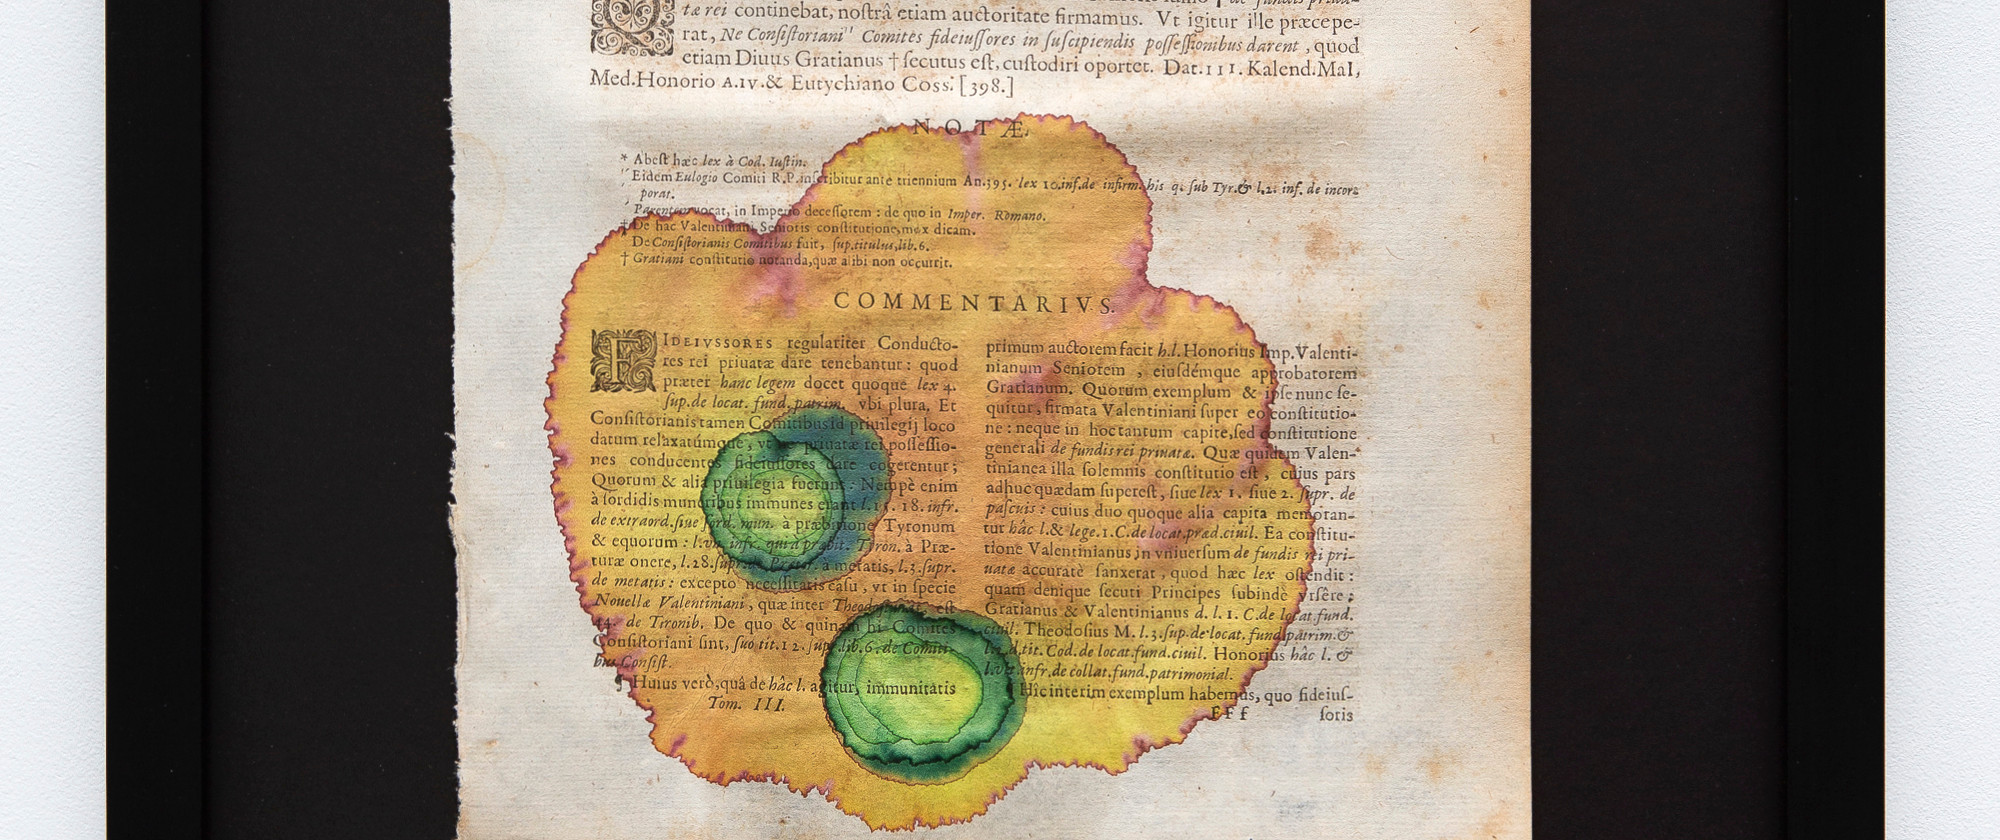 tæ rei continebat, noſtrâ etiam auctoritate firmamus. Vt igitur ille præcepe-
rat, Ne Conſiſtoriani" Comites fideiuſſores in ſuſcipiendis poſſeſſionibus darent, quod
etiam Diuus Gratianus † ſecutus eſt, cuſtodiri oportet. Dat. III. Kalend. MaI,
Med. Honorio A. IV. & Eutychiano Coss. [398.]
NOTÆ.
* Abeſt hæc lex à Cod. Iuſtin.
" Eidem Eulogio Comiti R.P. inſcribitur ante triennium An. 395. lex 10. inf. de infirm. his q. ſub Tyr. & l. 2. inf. de incor-
porat.
, Parentem vocat, in Imperio deceſſorem : de quo in Imper. Romano.
† De hac Valentiniani Senioris conſtitutione, mox dicam.
De Conſiſtorianis Comitibus fuit, ſup. titulus, lib. 6.
† Gratiani conſtitutio notanda, quæ alibi non occurrit.
COMMENTARIVS.
FIDEIVSSORES regulariter Conducto-
res rei priuatæ dare tenebantur : quod
præter hanc legem docet quoque lex 4.
ſup. de locat. fund. patrim. vbi plura, Et
Conſiſtorianis tamen Comitibus id priuilegij loco
datum relaxatúmque, vt priuatæ rei poſſeſſio-
nes conducentes fideiuſſores dare cogerentur;
Quorum & alia priuilegia fuerunt : Nempè enim
à ſordidis muneribus immunes erant l. 15. 18. infr.
de extraord. ſiue ſord. mun. à præbitione Tyronum
& equorum : l. vn. infr. qui à præbit. Tyron. à Præ-
turæ onere, l. 28. ſupr. de Prætor. à metatis, l. 3. ſupr.
de metatis : excepto neceſſitatis caſu, vt in ſpecie
Nouellæ Valentiniani, quæ inter Theodoſianas est
44. de Tironib. De quo & quinam hi Comites
Conſiſtoriani ſint, ſuo tit. 12. ſup. lib. 6. de Comiti-
bus Conſiſt.
¶ Huius verò, quâ de hâc l. agitur, immunitatis
Tom. III.
primum auctorem facit h. l. Honorius Imp. Valenti-
nianum Seniorem, eiuſdémque approbatorem
Gratianum. Quorum exemplum & ipſe nunc ſe-
quitur, firmata Valentiniani ſuper eo conſtitutio-
ne : neque in hoc tantum capite, ſed conſtitutione
generali de fundis rei priuatæ. Quæ quidem Valen-
tinianea illa ſolemnis conſtitutio eſt, cuius pars
adhuc quædam ſupereſt, ſiue lex 1. ſiue 2. ſupr. de
paſcuis : cuius duo quoque alia capita memoran-
tur hâc l. & lege. 1. C. de locat. præd. ciuil. Ea conſtitu-
tione Valentinianus in vniuerſum de fundis rei pri-
uatæ accuratè ſanxerat, quod hæc lex oſtendit :
quam denique ſecuti Principes ſubindè vrſêre ;
Gratianus & Valentinianus d. l. 1. C. de locat. fund.
ciuil. Theodoſius M. l. 3. ſup. de locat. fund. patrim. &
d. tit. Cod. de locat. fund. ciuil. Honorius hâc l. &
infr. de collat. fund. patrimonial.
Hîc interim exemplum habemus, quo fideiuſ-
FFf ſoris